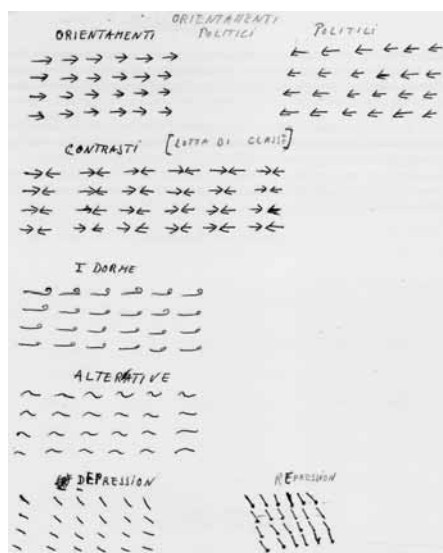 ORIENTAMENTI
POLITICI
ORIENTAMENTI
POLITICI
CONTRASTI [LOTTA DI CLASSE]
I DORME
ALTERNATIVE
DEPRESSION
REPRESSION